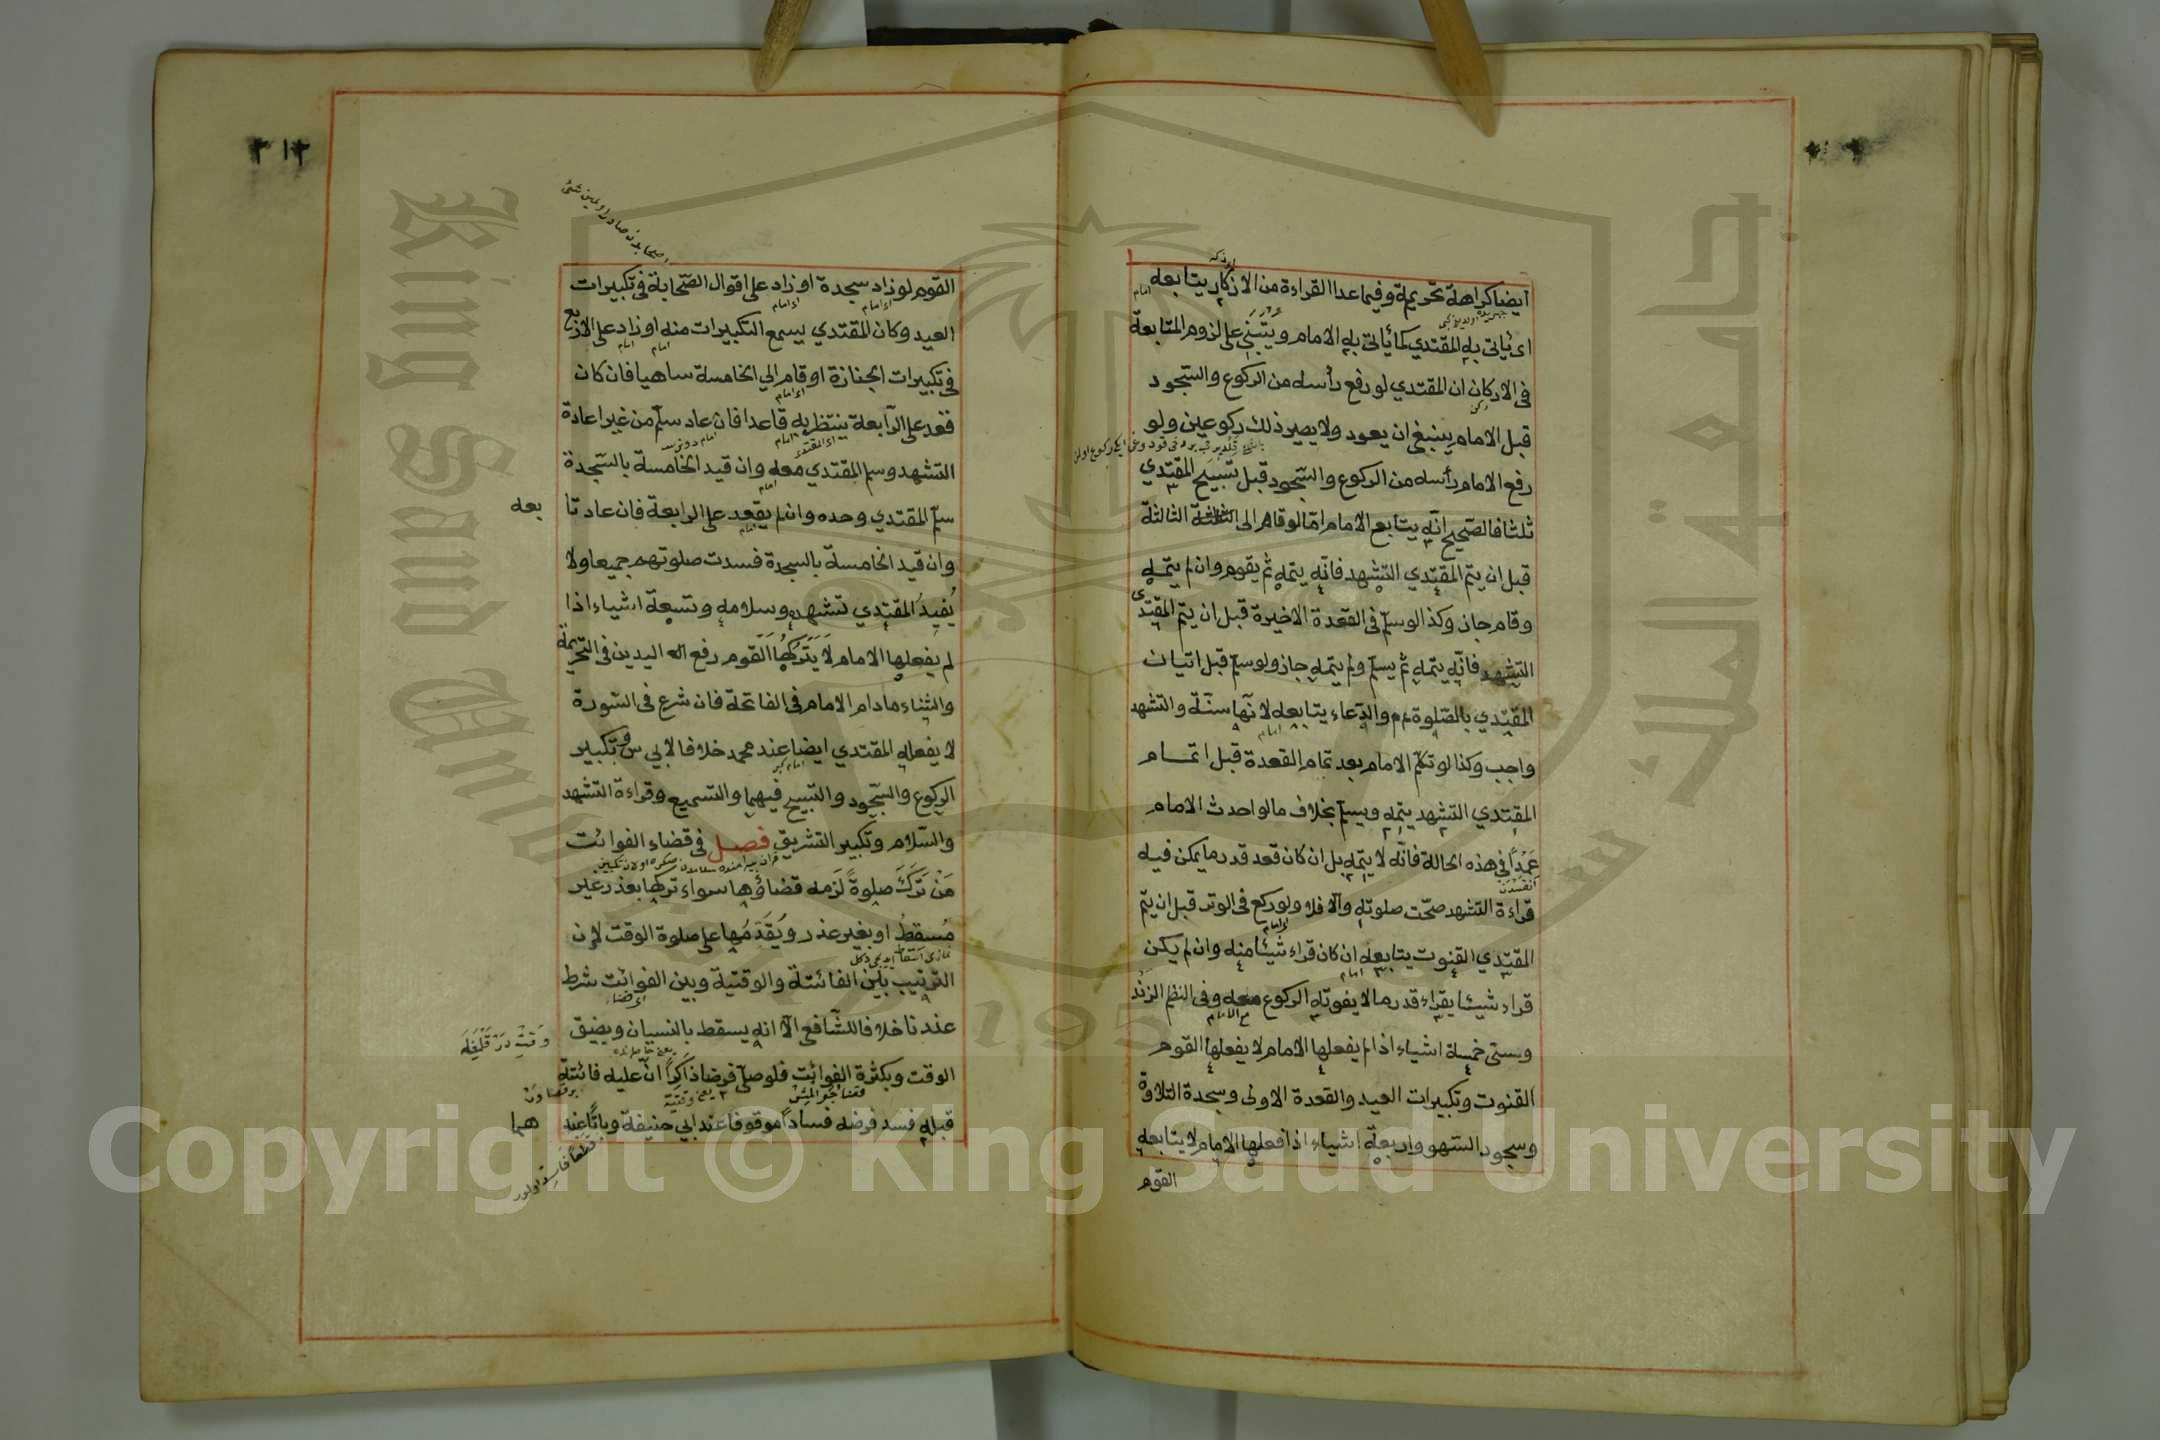 ايضا كراهة تحريمة وفيما عدا القراءة من الاذكار يتابعه
اى يأتى به المقتدي كما يأتى به الامام ويبتنى على لزوم المتابعة
فى الاركان ان المقتدي لو رفع رأسه من الركوع والسجود
قبل الامام ينبغى ان يعود ولا يصير ذلك ركوعين ولو
رفع الامام رأسه من الركوع والسجود قبل تسبيح المقتدي
ثلثا فالصحيح انّه يتابع الامام امّا لو قام الى الثالثة
قبل ان يتم المقتدي التشهد فانّه يتمه ثم يقوم وان لم يتمه
وقام جاز وكذا لو سلّم فى القعدة الاخيرة قبل ان يتم المقتدى
التشهد فانّه يتمه ثم يسلّم ولم يتمه جاز ولو سلّم قبل اتيان
المقتدي بالصّلوة م والدّعاء يتابعه لانّها سنّة والتشهد
واجب وكذا لو تكلّم الامام بعد تمام القعدة قبل اتمام
المقتدي التشهد يتمه ويسلّم بخلاف ما لو احدث الامام
عمدا فى هذه الحالة فانّه لا يتمه بل ان كان قعد قدر ما يمكن فيه
قراءة التشهد صحّت صلوته والّا فلا ولو ركع فى الوتر قبل ان يتم
المقتدي القنوت يتابعه ان كان قراء شيئا منه وان لم يكن
قراء شيئا يقراء قدر ما لا يفوته الركوع معه وفى النظم الزند
وستى خمسة اشياء اذا لم يفعلها الامام لا يفعلها القوم
القنوت وتكبيرات العيد والقعدة الاولى وسجدة التلاوة
وسجود السهو واربعة اشياء اذا فعلها الامام لا يتابعه
القوم
٣١٢
القوم لو زاد سجدة او زاد على اقوال الصّحابة فى تكبيرات
العيد وكان المقتدي يسمع التكبيرات منه او زاد على الاربع
فى تكبيرات الجنازة او قام الي الخامسة ساهيا فان كان
قعد على الرّابعة ينتظر به قاعدا فان عاد سلّم من غير اعادة
التشهد وسلم المقتدي معه وان قيد الخامسة بالسّجدة
سلّم المقتدي وحده وان لم يقعد على الرابعة فان عاد تا
بعه
وان قيد الخامسة بالسجدة فسدت صلوتهم جميعا ولا
يُفيدُ المقتدي تشهده وسلامه وتسعة اشياء اذا
لم يفعلها الامام لا يتركها القوم رفع اله اليدين فى التحريمة
والثناء مادام الامام فى الفاتحة فان شرع فى السّورة
لا يفعله المقتدي ايضا عند محمد خلافا لابي س وتكبير
الركوع والسّجود والتبيح فيهما والتسميع وقراءة التشهد
والسّلام وتكبير التشريق فصل فى قضاء الفوائت
مَن تَرَكَ صلوةً لَزمه قضاؤها سواء تركها بعذر غير
مُسقطُ او بغير عذر ويُقَدمُها على صلوة الوقت لان
الترتيب بَين الفائتة والوقتية وبين الفوائت شرط
عندنا خلافا للشّافعى الّا انه يسقط بالنسيان وبضيق
الوقت وبكثرة الفوائت فلو صلّى فرضا ذاكراً انّ عليه فائتة
قبله فسد فرضه فساداً موقوفا عند ابي حنيفة وباتّا عند
هما